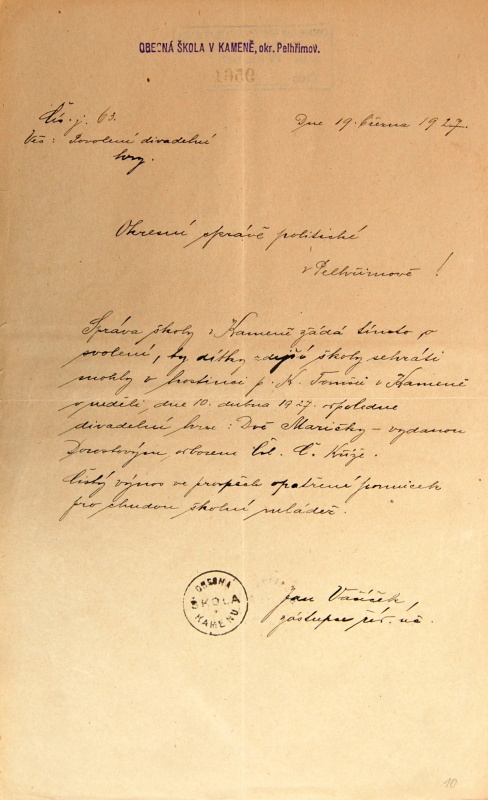 OBECNÁ ŠKOLA V KAMENĚ, okr. Pelhřimov.
Čís. j. 63.
Dne 19. března 1927.
Věc: Povolení divadelní
hry.
Okresní správě politické
v Pelhřimově!
Správa školy v Kameně žádá tímto o
svolení, by dítky zdejší školy sehráti
mohly v hostinci p. K. Tomší v Kameně
v neděli, dne 10. dubna 1927 odpoledne
divadelní hru: Dvě Mařičky – vydanou
Dorostovým odborem Čsl. Č. Kříže.
Čistý výnos ve prospěch opatření pomůcek
pro chudou školní mládež.
OBECNÁ
ŠKOLA
KAMENU
Jan Vašíček,
zástupce říd. uč.
10